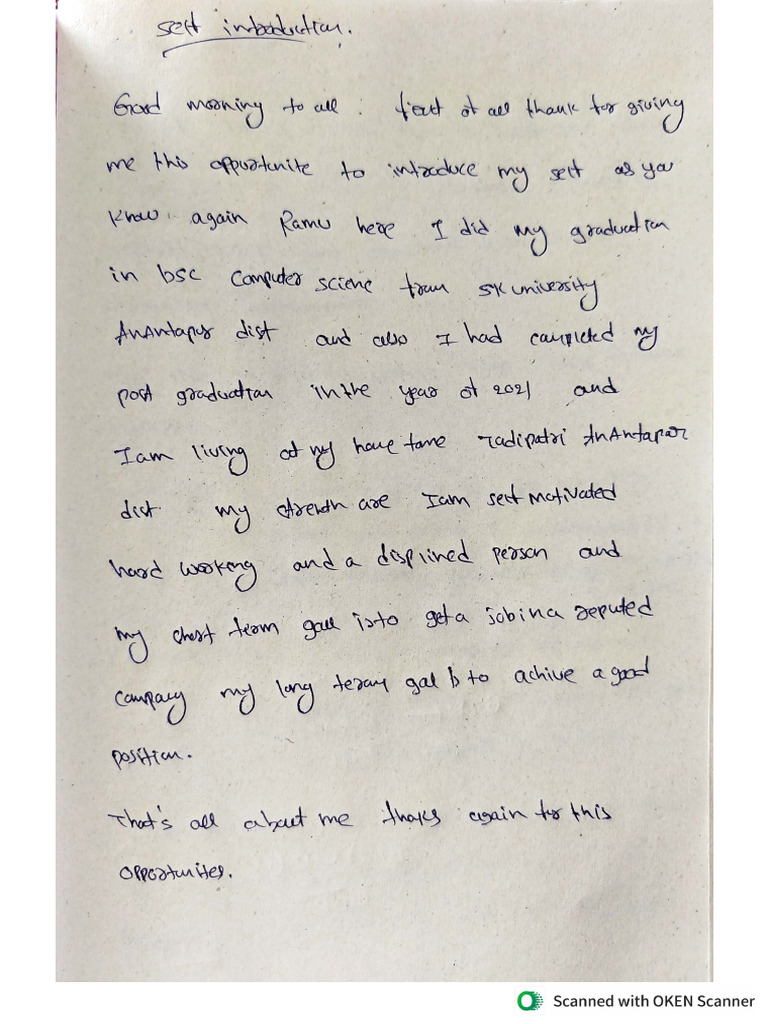 self introduction.
Good morning to all. first of all thank for giving
me this opportunite to introduce my self as you
know. again Ramu here I did my graduation
in bsc Computer sciene from SK university
AnAntapur dist and also I had completed my
post graduation in the year of 2021 and
I am living at my home tame Tadipatri AnAntapar
dist. my strenth are I am self motivated
hard working and a displined person and
my short term goal is to get a job in a reputed
company my long term gal is to achive a good
position.
That's all about me thaks again for this
opportunites.
Scanned with OKEN Scanner